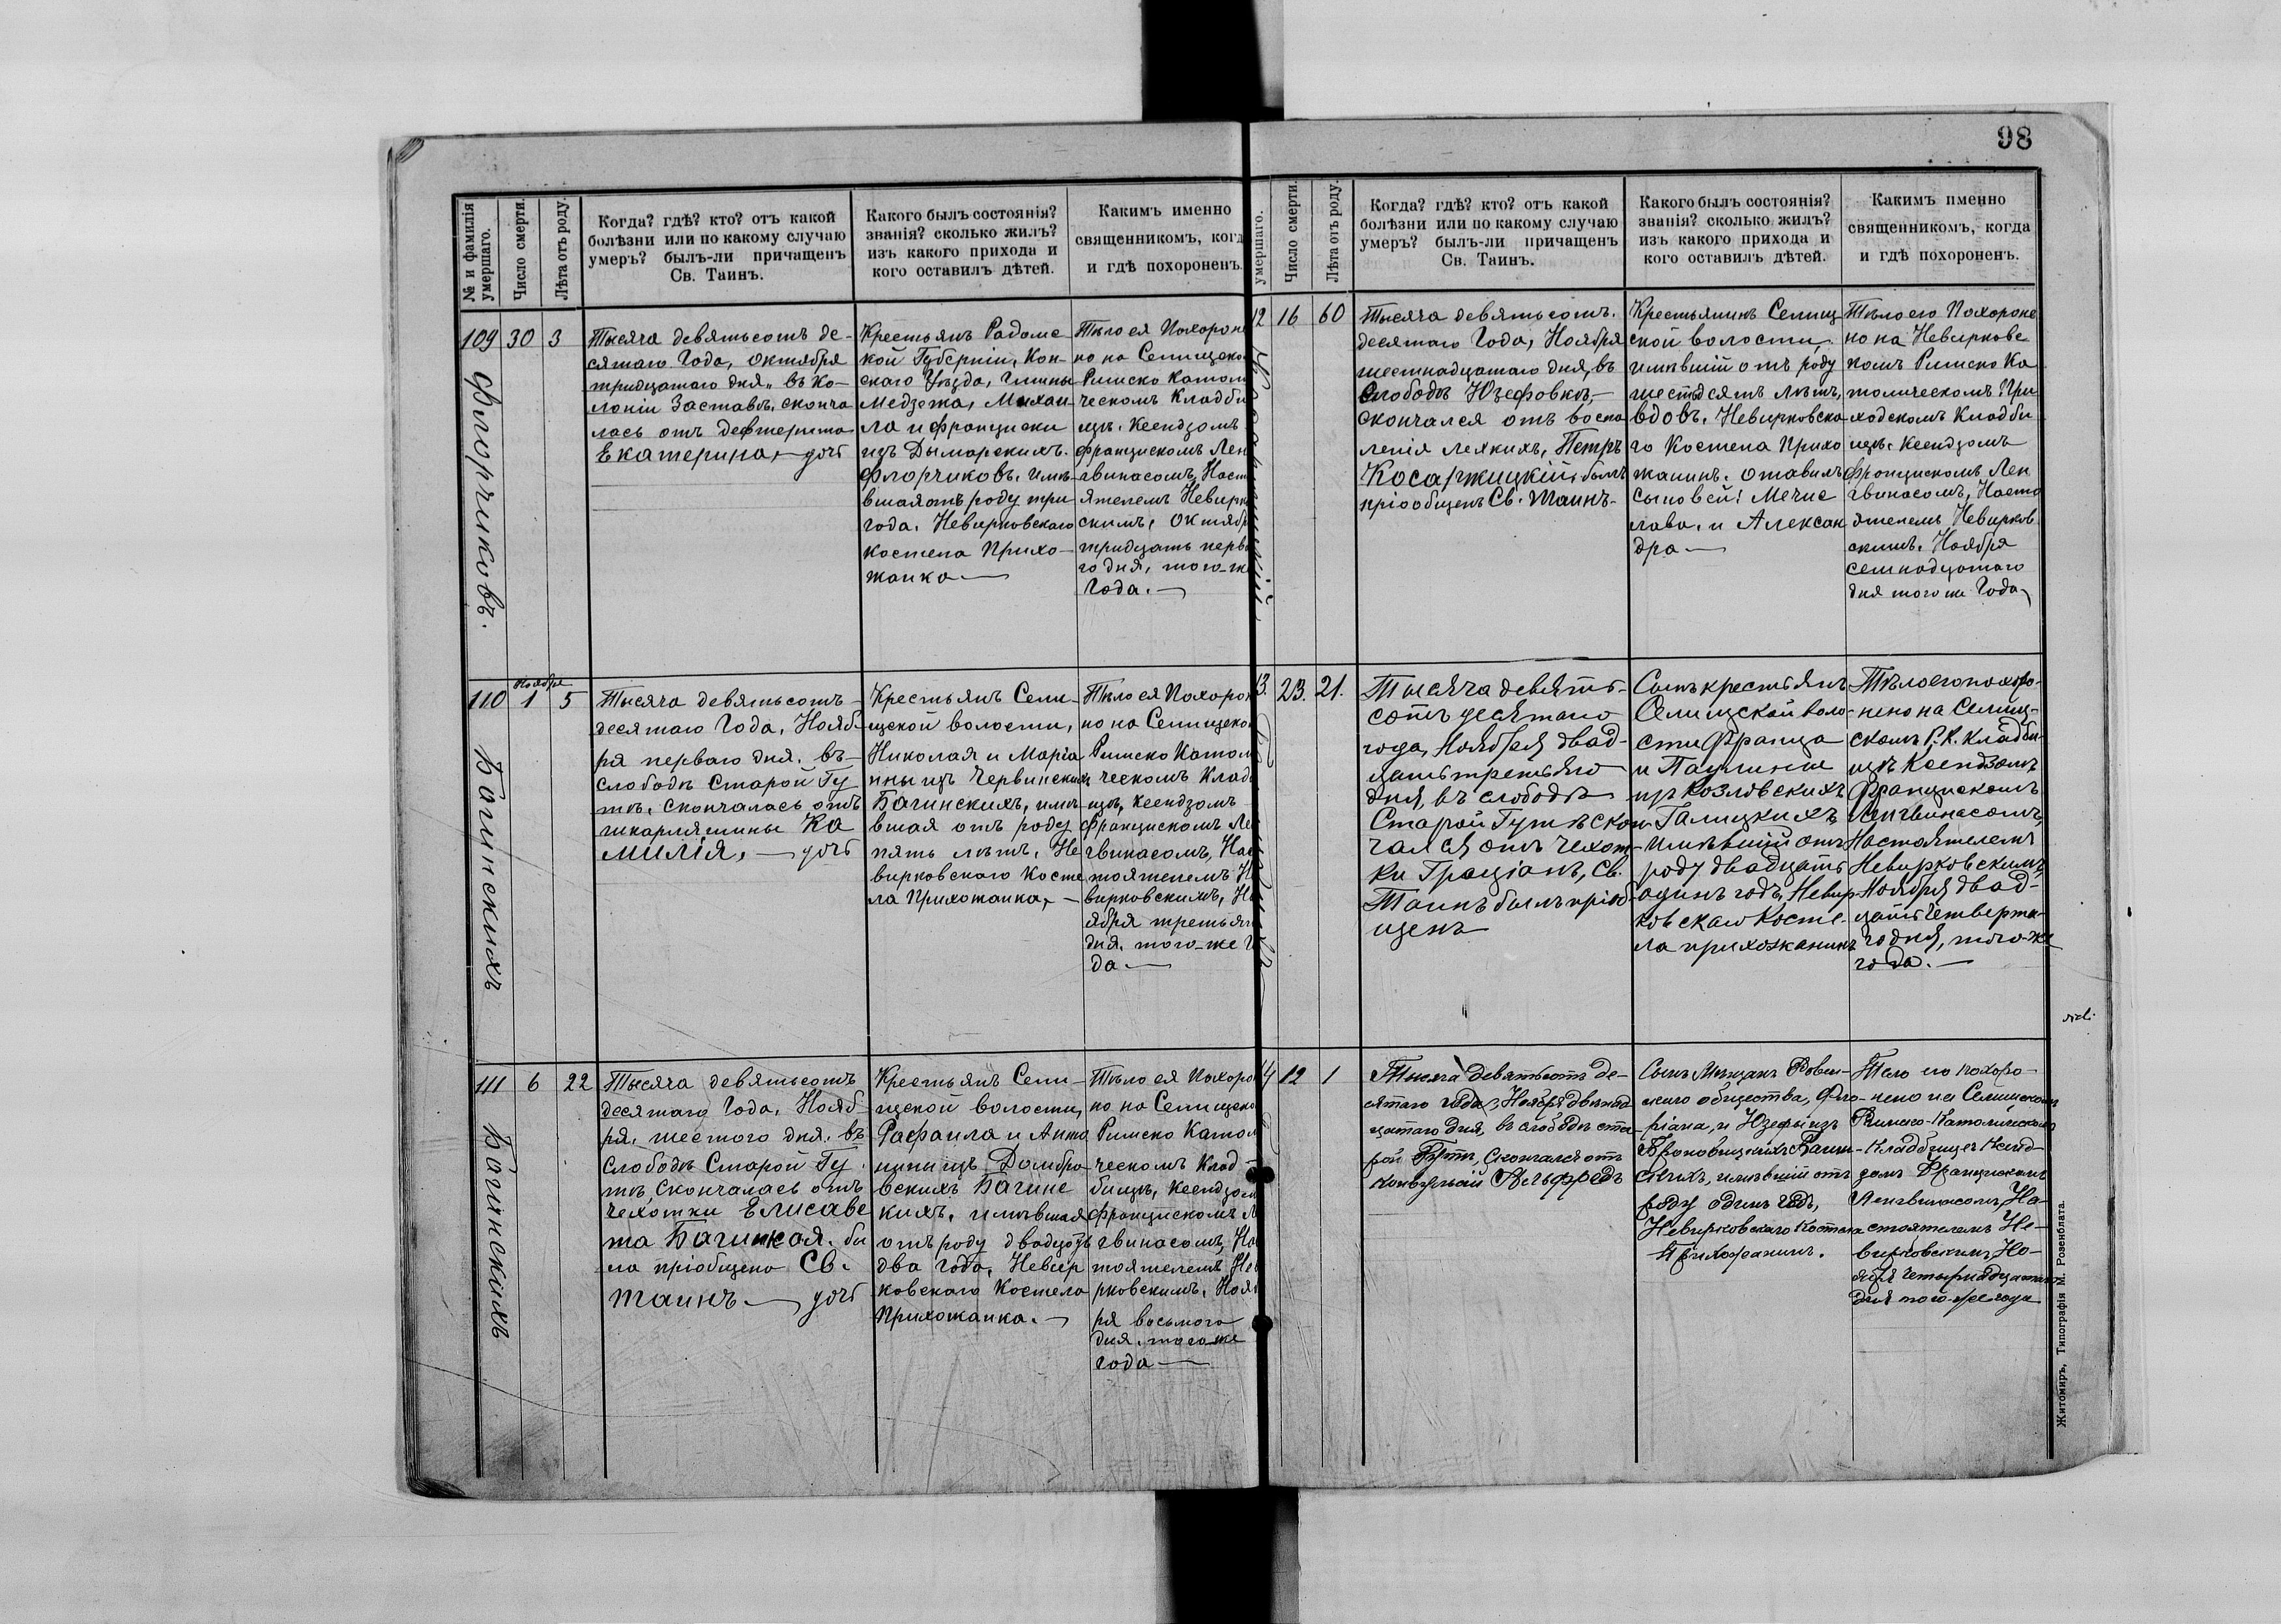 98
№ и фамилія умершаго.
Число смерти.
Лѣта отъ роду.
Когда? гдѣ? кто? отъ какой
болѣзни или по какому случаю
умеръ? былъ-ли причащенъ
Св. Таинъ.
Какого былъ состоянія?
званія? сколько жилъ?
изъ какого прихода и
кого оставилъ дѣтей.
Каким­ъ именно
священникомъ, когд
и гдѣ похороненъ.
109 30 3
Флорчиковъ.
Тысяча девятьсотъ де-
сятаго Года, Октября
тридцатаго дня, въ ко-
лоніи Заставѣ, сконча
лась отъ дефтерита
Екатерина, — дочь
Крестьянъ Радомс
кой Губерніи, Кон-
скаго Уѣзда, Гмины
Медзежа, Михаи
ла и Франциски
изъ Дымарскихъ.
Флорчиковъ. имѣ-
вшая отъ роду три
года. Невирковскаго
костела Прихо-
жанка —
Тѣло ея Похороне
но на Селищеко
Римско Катол
ческомъ Кладби
щѣ. Ксендзомъ
Францискомъ Лен
гвинасомъ, Наст
ятелемъ Невирко
скимъ, Октябр
тридцать перва
го дня, того-же
Года. —
110 Ноября 1 5
Багинскихъ
Тысяча девятьсотъ
десятаго Года, Нояб-
ря перваго дня. въ-
слободѣ Старой Гу
тѣ. скончалась отъ
шкарлятины Ка
милія, — дочь
Крестьянъ Сели-
щской волости,
Николая и Маріа
нны изъ Червинскихъ
Багинскихъ, имѣ-
вшая отъ роду
пять лѣтъ, Не
вирковскаго Косте
ла Прихожанка, —
Тѣло ея Похорон
но на Селищеко
Римско Катол
ческомъ Клад
щѣ, Ксендзомъ
Францискомъ Ле
гвинасомъ, Нас
тоятелемъ Н
вирковскимъ, Но
ября третьяго
дня. того-же Г
да —
111 6 22
Багинскихъ
Тысяча девятьсотъ
десятаго Года. Нояб-
ря, шестого дня. въ
Слободѣ Старой Гу
тѣ, скончалась отъ
Чехотки Елисаве
та Багинская. бы
ла пріобщена Св.
Таинъ — дочь
Крестьянъ Сели-
щской волости,
Рафаила и Анто
нины изъ Домбро
вскихъ Багинс
кихъ. имѣвшая
отъ роду двадцать
два Года, Невир
ковскаго Костела
Прихожанка. —
Тѣло ея Похоро
но на Селищеко
Римско Катол
ческомъ Клад
бищѣ, Ксендзом
Францискомъ Л
гвинасомъ, На
тоятелемъ Не
рковскимъ. Нояб
ря восьмого
дня. того же
Года —
умершаго.
Число смерти.
Лѣта отъ роду.
Когда? гдѣ? кто? отъ какой
болѣзни или по какому случаю
умеръ? былъ-ли причащенъ
Св. Таинъ.
Какого былъ состоянія?
званія? сколько жилъ?
изъ какого прихода и
кого оставилъ дѣтей.
Какимъ именно
священникомъ, когда
и гдѣ похороненъ.
12 16 60
Тысяча девятьсотъ.
десятаго Года, Ноября
шестнадцатаго дня, въ
Слободѣ Юзефовкѣ, —
скончался отъ воспа
ленія легкихъ, Петръ
Косаржицкій былъ
пріообщенъ Св. Таинъ-
Крестьянинъ Селищ
ской волости,
имѣвшій отъ роду
шестьдсятъ лѣтъ,
вдовъ. Невирковска
го Костела Прихо
жанинъ. отавилъ
сыновей: Мечис
лава. и Алексан
дра —
Тѣло его Похороне
но на Невирковс
комъ Римско Ка
толическомъ При
ходскомъ Кладби
щѣ. Ксендзомъ
Францискомъ Лен
гвинасомъ, Насто
ятелемъ Невирков
скимъ. Ноября
семнадцатаго
дня того же Года
13. 23. 21.
Тысяча девять-
сотъ десятаго
года, Ноября двад-
цать третьяго
дня, въ слободѣ
Старой Гутѣ скон-
чался отъ чехот-
ки Граціанъ, Св.
Таинъ былъ пріоб-
щенъ
Сынъ крестьянъ
Селищской воло-
сти Франца
и Паулины
изъ Козловскихъ
Галицкихъ
имѣвшій отъ
роду двадцать
одинъ годъ, Невир-
ковскаго Косте-
ла прихожанинъ
Тѣло его похоро-
нено на Селищ-
скомъ Р. К. кладби-
щѣ Ксендзомъ
Францискомъ
Ленгвинасомъ,
Настоятелемъ
Невирковскимъ,
Ноября двад-
цать четверта-
го дня, того-же
года. —
14 12 1
Тысяча девятьсотъ де-
сятаго года, Ноября двѣнад
цатаго дня, въ слободѣ ста-
рой Гутѣ, скончался отъ
конвульсій Альфредъ
Сынъ Мѣщанъ Ровен-
скаго общества, Фло-
ріана, и Юзефы изъ
имѣвшій отъ
роду одинъ годъ,
Невирковскаго Костела
Прихожанинъ.
Тело его похоро-
нено на Селищскомъ
Римско-Католическомъ
Кладбище Ксенд-
зомъ Францискомъ
Ленгвинасомъ, На-
стоятелемъ Не-
вирковскимъ, Но-
ября четырнадцатаго
дня того-же года
Житомиръ, Типографія М. Розенблата.